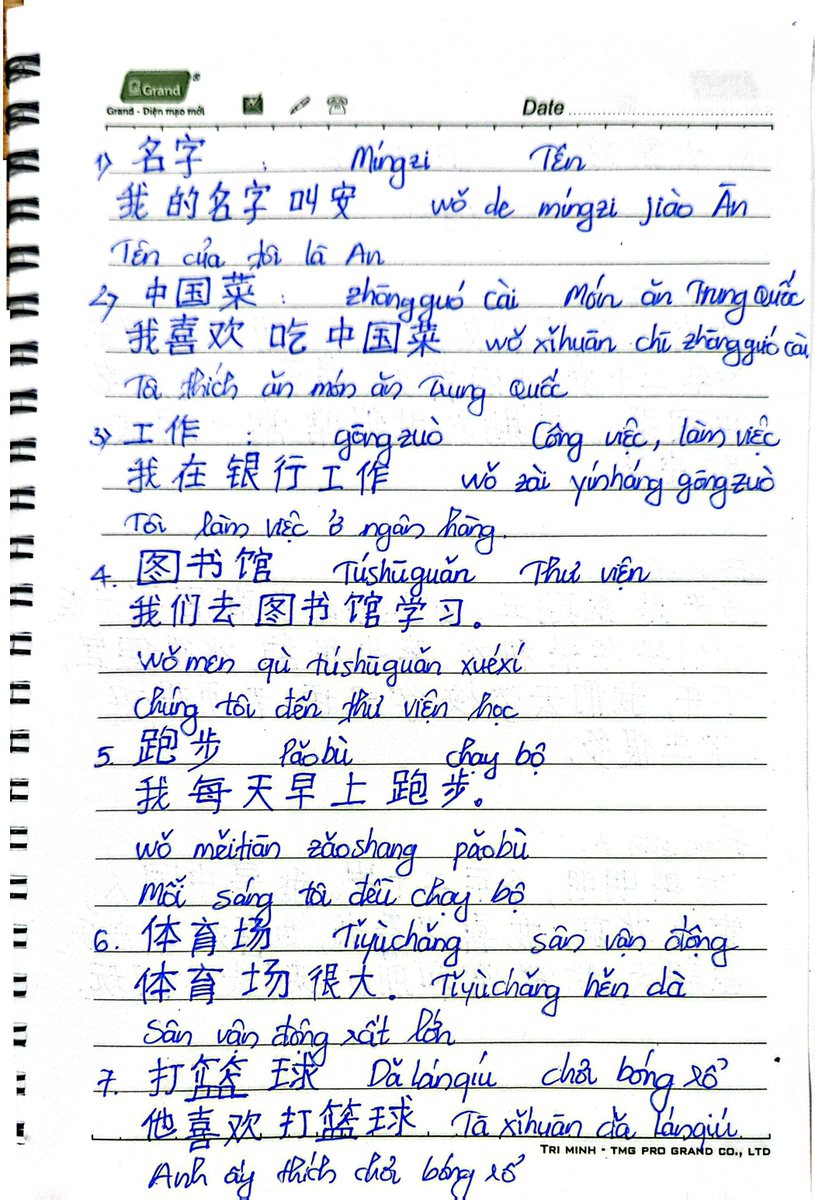 Grand®
Grand - Diện mạo mới
Date
1) 名字 : Míngzi Tên
我的名字叫安 wǒ de míngzi jiào Ān
Tên của tôi là An
2) 中国菜 : zhōngguó cài Món ăn Trung Quốc
我喜欢吃中国菜 wǒ xǐhuān chī zhōngguó cài
Tôi thích ăn món ăn Trung Quốc
3) 工作 : gōngzuò Công việc, làm việc
我在银行工作 wǒ zài yínháng gōngzuò
Tôi làm việc ở ngân hàng.
4. 图书馆 Túshūguǎn Thư viện
我们去图书馆学习。
wǒmen qù túshūguǎn xuéxí
chúng tôi đến thư viện học
5. 跑步 Pǎobù chạy bộ
我每天早上跑步。
wǒ měitiān zǎoshang pǎobù
Mỗi sáng tôi đều chạy bộ
6. 体育场 Tǐyùchǎng sân vận động
体育场很大. Tǐyùchǎng hěn dà
Sân vận động rất lớn
7. 打篮球 Dǎ lánqiú chơi bóng rổ
他喜欢打篮球. Tā xǐhuān dǎ lánqiú.
TRI MINH - TMG PRO GRAND CO., LTD
Anh ấy thích chơi bóng rổ